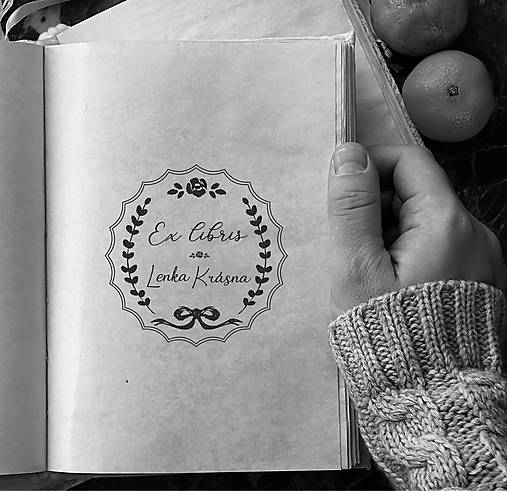 Ex libris
Lenka Krásna